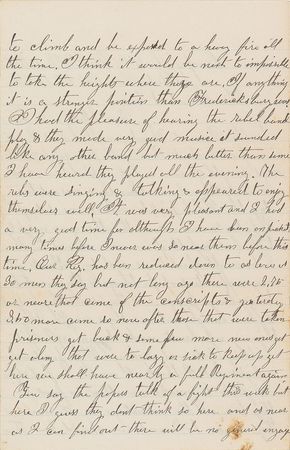 to climb and be exposed to a heavy fire all
the time. I think it would be next to impossible
to take the heights where they are. If anything
it is a stronger position than Fredericksburg was
I had the pleasure of hearing the rebel band
play & they made very good musice it sounded
like any other band but much better than some
I have heard they played all the evening. The
rebs were singing & talking & appeared to enjoy
themselves well. It was very pleasant and I had
a very good time for although I have been on picket
many times before I never was so near them before this
time. Our Reg. has been reduced down to as low as
30 men they say but not long ago there were 2,25
or more that came of the conscripts & yesterday
more came so now after those that were taken
prisoners get back & some few more new ones get
get along that were to lazy or sick to keep up get
here we shall have nearly a full Regiment again
You say the papers talk of a fight this week but
here I guess they dont think so here and as near
as I can find out there will be no general engag